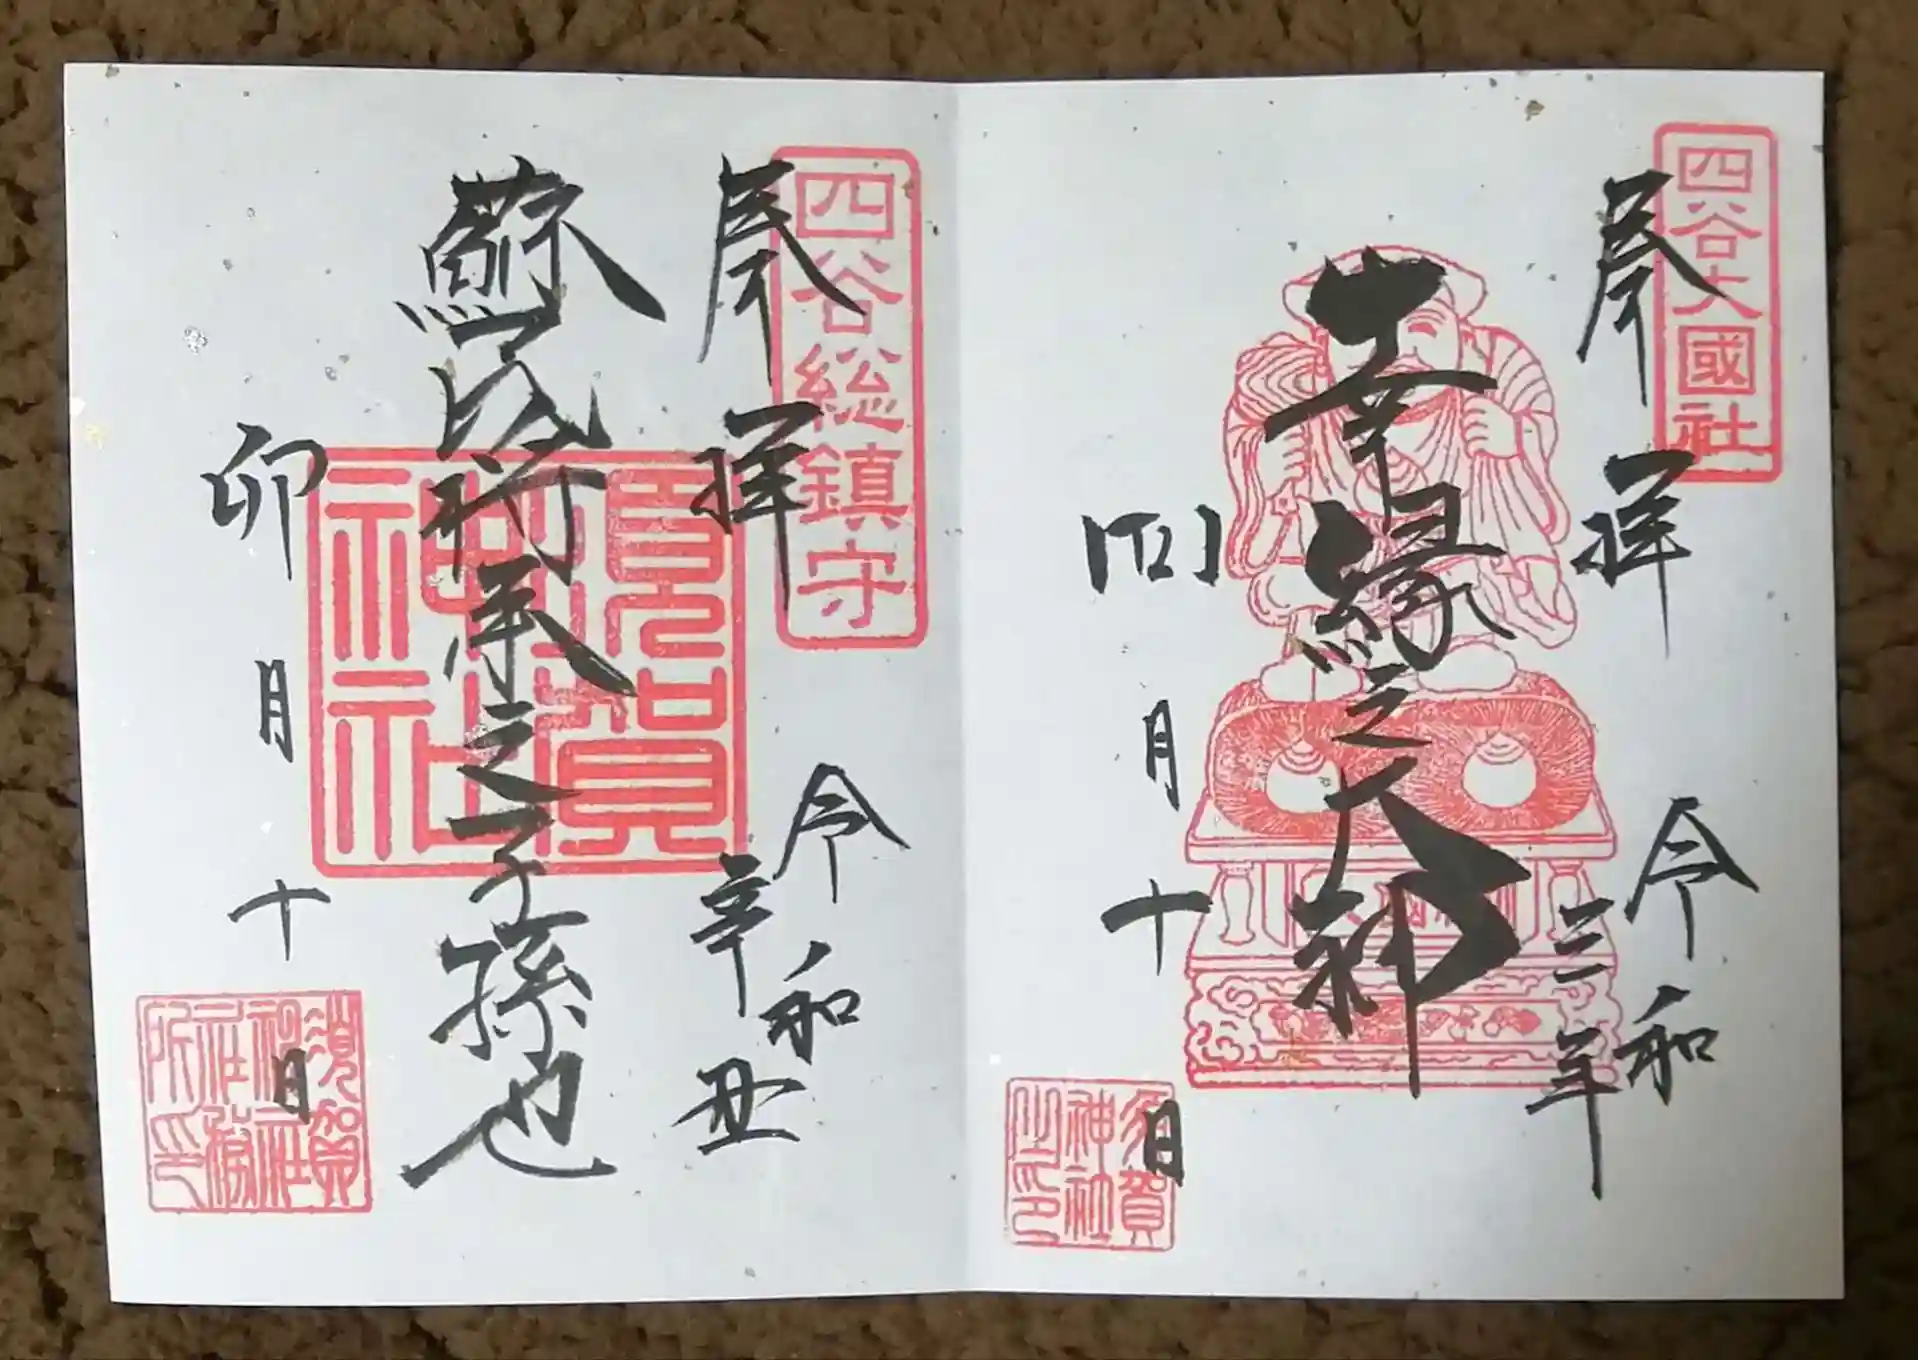 四谷大國社
奉拝
令和
三年
幸縁之大神
四月十日
須賀神社之印
四谷総鎮守
奉拝
令和
辛丑
蘇民将来之子孫也
須賀神社
卯月十日
須賀神社社務所印